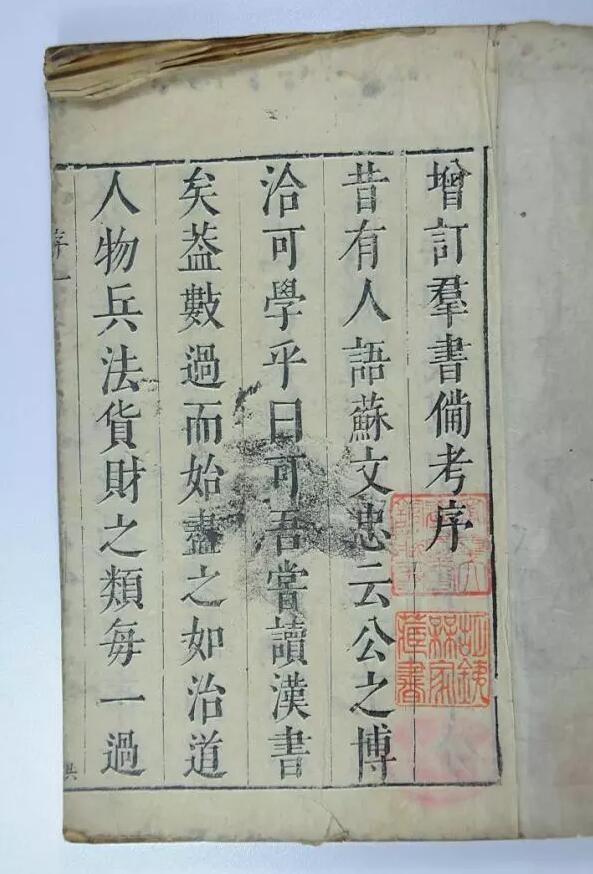 增訂羣書備考序
昔有人語蘇文忠云公之博
洽可學乎曰可吾嘗讀漢書
矣葢數過而始盡之如治道
人物兵法貨財之類每一過
序一
藏書